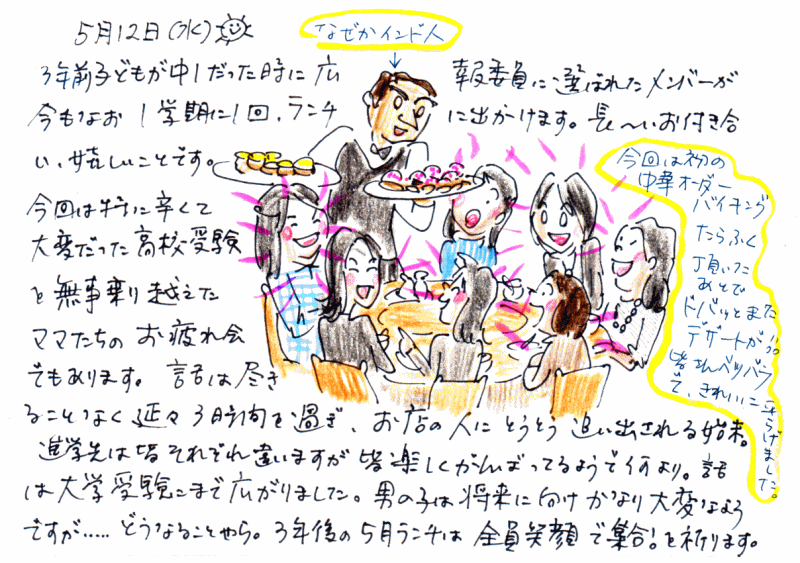 5月12日(水)
なぜかインド人
3年前子どもが中1だった時に広報委員に選ばれたメンバーが
今もなお1学期に1回、ランチに出かけます。長〜いお付き合
い、嬉しいことです。
今回は特に辛くて
大変だった高校受験
を無事乗り越えた
ママたちのお疲れ会
でもあります。話は尽き
ることなく延々3時間を過ぎ、お店の人にとうとう追い出される始末。
進学先は皆それぞれ違いますが皆楽しくがんばってるようで何より。話
は大学受験にまで広がりました。男の子は将来に向けかなり大変なよう
ですが.....どうなることやら。3年後の5月ランチは全員笑顔で集合!を祈ります。
今回は初の
中華オーダー
バイキング
たらふく
頂いた
あとで
ドバッとまた
デザートが!!
皆さんベツバラ
で、きれいに平らげました。